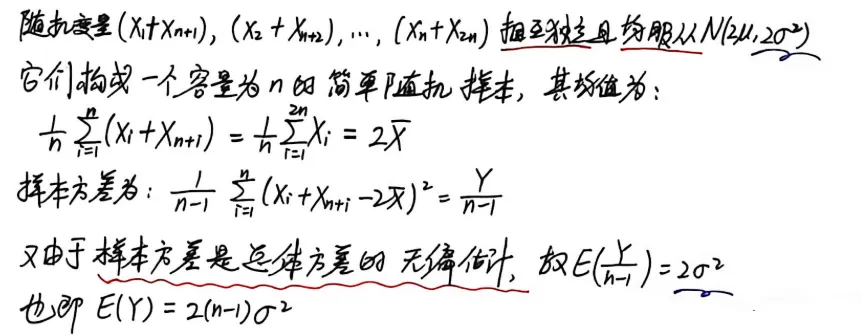 随机变量(X₁+Xₙ₊₁), (X₂+Xₙ₊₂), …, (Xₙ+X₂ₙ) 相互独立且均服从N(2μ, 2σ²)
它们构成一个容量为n的简单随机样本, 其均值为:
1/n ∑ᵢ₌₁ⁿ (Xᵢ+Xₙ₊ᵢ) = 1/n ∑ᵢ₌₁²ⁿ Xᵢ = 2X̄
样本方差为: 1/(n-1) ∑ᵢ₌₁ⁿ (Xᵢ+Xₙ₊ᵢ-2X̄)² = Y/(n-1)
又由于样本方差是总体方差的无偏估计, 故E(Y/(n-1)) = 2σ²
也即 E(Y) = 2(n-1)σ²